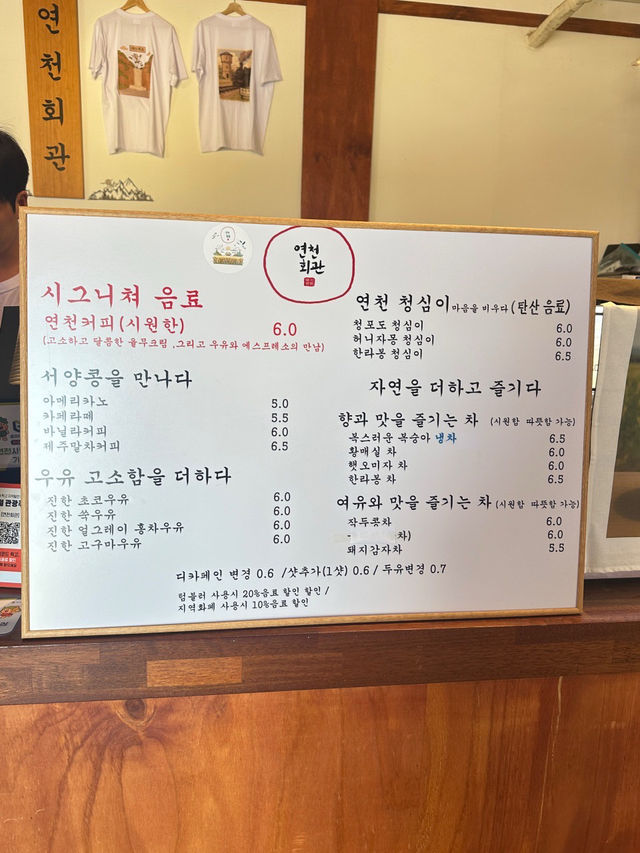 연천회관
연천
회관
시그니쳐 음료
연천커피(시원한) 6.0
(고소하고 달콤한 율무크림 ,그리고 우유와 에스프레소의 만남)
서양콩을 만나다
아메리카노 5.0
카페라떼 5.5
바닐라커피 6.0
제주말차커피 6.5
우유 고소함을 더하다
진한 초코우유 6.0
진한 쑥우유 6.0
진한 얼그레이 홍차우유 6.0
진한 고구마우유 6.0
연천 청심이 마음을 비우다 (탄산 음료)
청포도 청심이 6.0
허니자몽 청심이 6.0
한라봉 청심이 6.5
자연을 더하고 즐기다
향과 맛을 즐기는 차 (시원함 따뜻함 가능)
복스러운 복숭아 냉차 6.5
황매실 차 6.0
햇오미자 차 6.0
한라봉 차 6.5
여유와 맛을 즐기는 차 (시원함 따뜻함 가능)
작두콩차 6.0
차) 6.0
돼지감자차 5.5
디카페인 변경 0.6 /샷추가(1샷) 0.6 / 두유변경 0.7
텀블러 사용시 20%음료 할인 할인 /
지역화폐 사용시 10%음료 할인